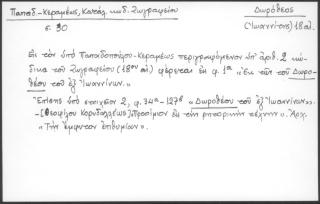 Παπαδ.-Κεραμέως, Κατάλ. κωδ. Ζωγραφείου
Δωρόθεος
(Ἰωαννίτης) 18 αἰ.
σ. 30
Ἐκ τῶν ὑπὸ Παπαδοπούλου-Κεραμέως περιγραφομένων ὑπ' ἀριθ. 2 κώ-
δικα τοῦ Ζωγραφείου (18ου αἰ.) φέρεται ἐν φ. 1α «Ἐκ τῶν τοῦ Δωρο-
θέου τοῦ ἐξ Ἰωαννίνων.»
Ἐπίσης ὑπὸ στοιχεῖον 2, φ. 34α-127β «Δωροθέου τοῦ ἐξ Ἰωαννίνων».-
-[Θεοφίλου Κορυδαλλέως] Προοίμιον εἰς τὴν ῥητορικὴν τέχνην». Ἀρχ.
«Τὴν ἔμφυτον ἐπιθυμίαν».